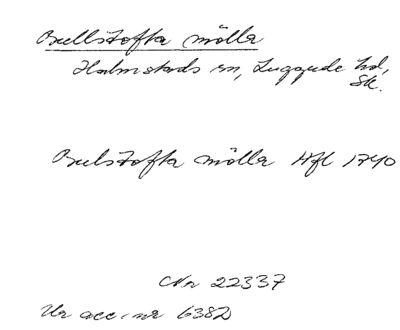 Bullstofta mölla
Halmstads sn, Luggude hd,
Sk.
Bulstofta mölla Hfl 1740
Nr 22337
Ur acc. nr 6382